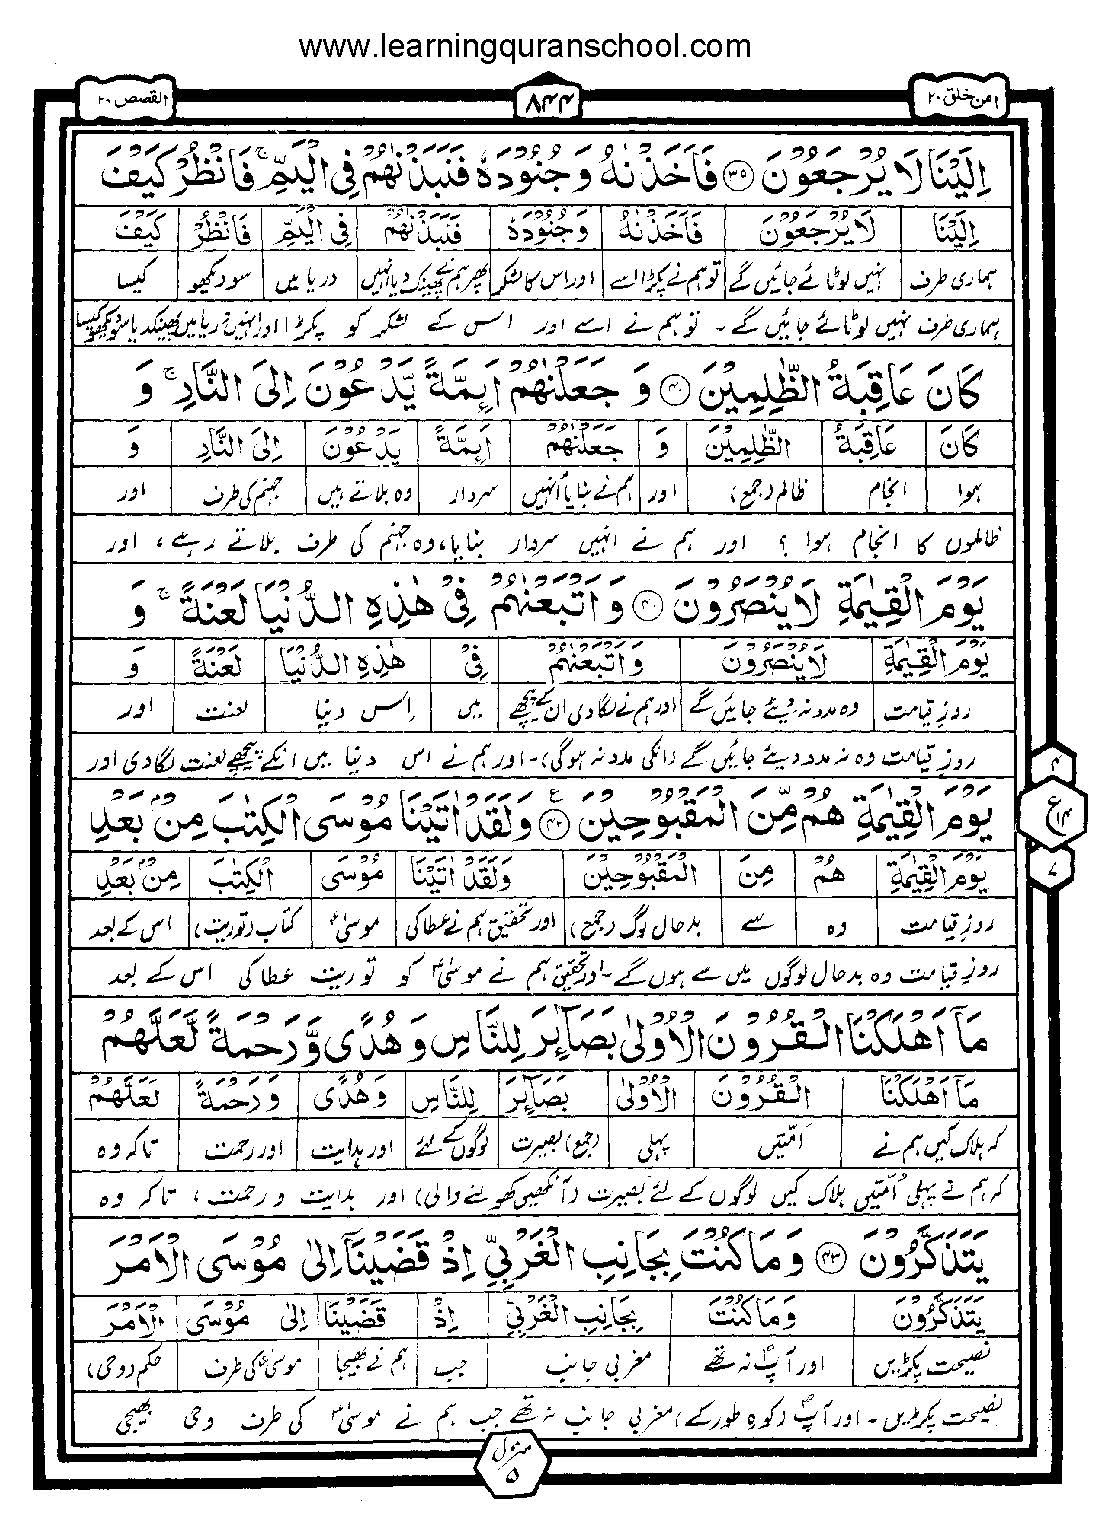 www.learningquranschool.com
امن خلق ۲۰
۸۴۴
القصص ۲۰
اِلَیْنَا لَا یُرْجَعُوْنَ ۳۵ فَاَخَذْنٰهُ وَجُنُوْدَهٗ فَنَبَذْنٰهُمْ فِی الْیَمِّ ۚ فَانْظُرْ كَیْفَ
اِلَیْنَا لَا یُرْجَعُوْنَ فَاَخَذْنٰهُ وَجُنُوْدَهٗ فَنَبَذْنٰهُمْ فِی الْیَمِّ فَانْظُرْ كَیْفَ
ہماری طرف نہیں لوٹائے جائیں گے تو ہم نے پکڑا اسے اور اس کا لشکر پھر ہم نے پھینک دیا انہیں دریا میں سو دیکھو کیسا
ہماری طرف نہیں لوٹائے جائیں گے۔ تو ہم نے اسے اور اس کے لشکر کو پکڑا اور انہیں دریا میں پھینکدیا سو دیکھو کیسا
كَانَ عَاقِبَةُ الظّٰلِمِیْنَ ۴۰ وَ جَعَلْنٰهُمْ اَىِٕمَّةً یَّدْعُوْنَ اِلَی النَّارِ ۚ وَ
كَانَ عَاقِبَةُ الظّٰلِمِیْنَ وَ جَعَلْنٰهُمْ اَىِٕمَّةً یَدْعُوْنَ اِلَی النَّارِ وَ
ہوا انجام ظالم (جمع) اور ہم نے بنایا انہیں سردار وہ بلاتے ہیں جہنم کی طرف اور
ظالموں کا انجام ہوا ؟ اور ہم نے انہیں سردار بنایا، وہ جہنم کی طرف بلاتے رہے، اور
یَوْمَ الْقِیٰمَةِ لَا یُنْصَرُوْنَ ۴۰ وَاَتْبَعْنٰهُمْ فِیْ هٰذِهِ الدُّنْیَا لَعْنَةً ۚ وَ
یَوْمَ الْقِیٰمَةِ لَا یُنْصَرُوْنَ وَاَتْبَعْنٰهُمْ فِیْ هٰذِهِ الدُّنْیَا لَعْنَةً وَ
روزِ قیامت وہ مدد نہ دیئے جائیں گے اور ہم نے لگا دی ان کے پیچھے میں اِس دنیا لعنت اور
روزِ قیامت وہ نہ مدد دیئے جائیں گے (انکی مدد نہ ہوگی)۔ اور ہم نے اس دنیا میں انکے پیچھے لعنت لگا دی اور
یَوْمَ الْقِیٰمَةِ هُمْ مِّنَ الْمَقْبُوْحِیْنَ ۴۰ وَلَقَدْ اٰتَیْنَا مُوْسَی الْكِتٰبَ مِنْۢ بَعْدِ
یَوْمَ الْقِیٰمَةِ هُمْ مِنَ الْمَقْبُوْحِیْنَ وَلَقَدْ اٰتَیْنَا مُوْسَی الْكِتٰبَ مِنْۢ بَعْدِ
روزِ قیامت وہ سے بدحال لوگ (جمع) اور تحقیق ہم نے عطا کی موسیٰؑ کتاب (توریت) اس کے بعد
روزِ قیامت وہ بدحال لوگوں میں سے ہوں گے۔ اور تحقیق ہم نے موسیٰؑ کو توریت عطا کی اس کے بعد
مَاۤ اَهْلَكْنَا الْقُرُوْنَ الْاُوْلٰی بَصَآىِٕرَ لِلنَّاسِ وَهُدًی وَّرَحْمَةً لَّعَلَّهُمْ
مَا اَهْلَكْنَا الْقُرُوْنَ الْاُوْلٰی بَصَآىِٕرَ لِلنَّاسِ وَهُدًی وَرَحْمَةً لَعَلَّهُمْ
کہ ہلاک کیں ہم نے اُمّتیں پہلی (جمع) بصیرت لوگوں کے لئے اور ہدایت اور رحمت تاکہ وہ
کہ ہم نے پہلی اُمّتیں ہلاک کیں لوگوں کے لئے بصیرت (آنکھیں کھولنے والی) اور ہدایت و رحمت، تاکہ وہ
یَتَذَكَّرُوْنَ ۴۳ وَمَا كُنْتَ بِجَانِبِ الْغَرْبِیِّ اِذْ قَضَیْنَاۤ اِلٰی مُوْسَی الْاَمْرَ
یَتَذَكَّرُوْنَ وَمَا كُنْتَ بِجَانِبِ الْغَرْبِیِّ اِذْ قَضَیْنَا اِلٰی مُوْسَی الْاَمْرَ
نصیحت پکڑیں اور آپؐ نہ تھے مغربی جانب جب ہم نے بھیجا موسیٰؑ کی طرف حکم (وحی)
نصیحت پکڑیں۔ اور آپؐ (کوہ طور کے) مغربی جانب نہ تھے جب ہم نے موسیٰؑ کی طرف وحی بھیجی
۴
ع
۱۴
۷
منزل
۵